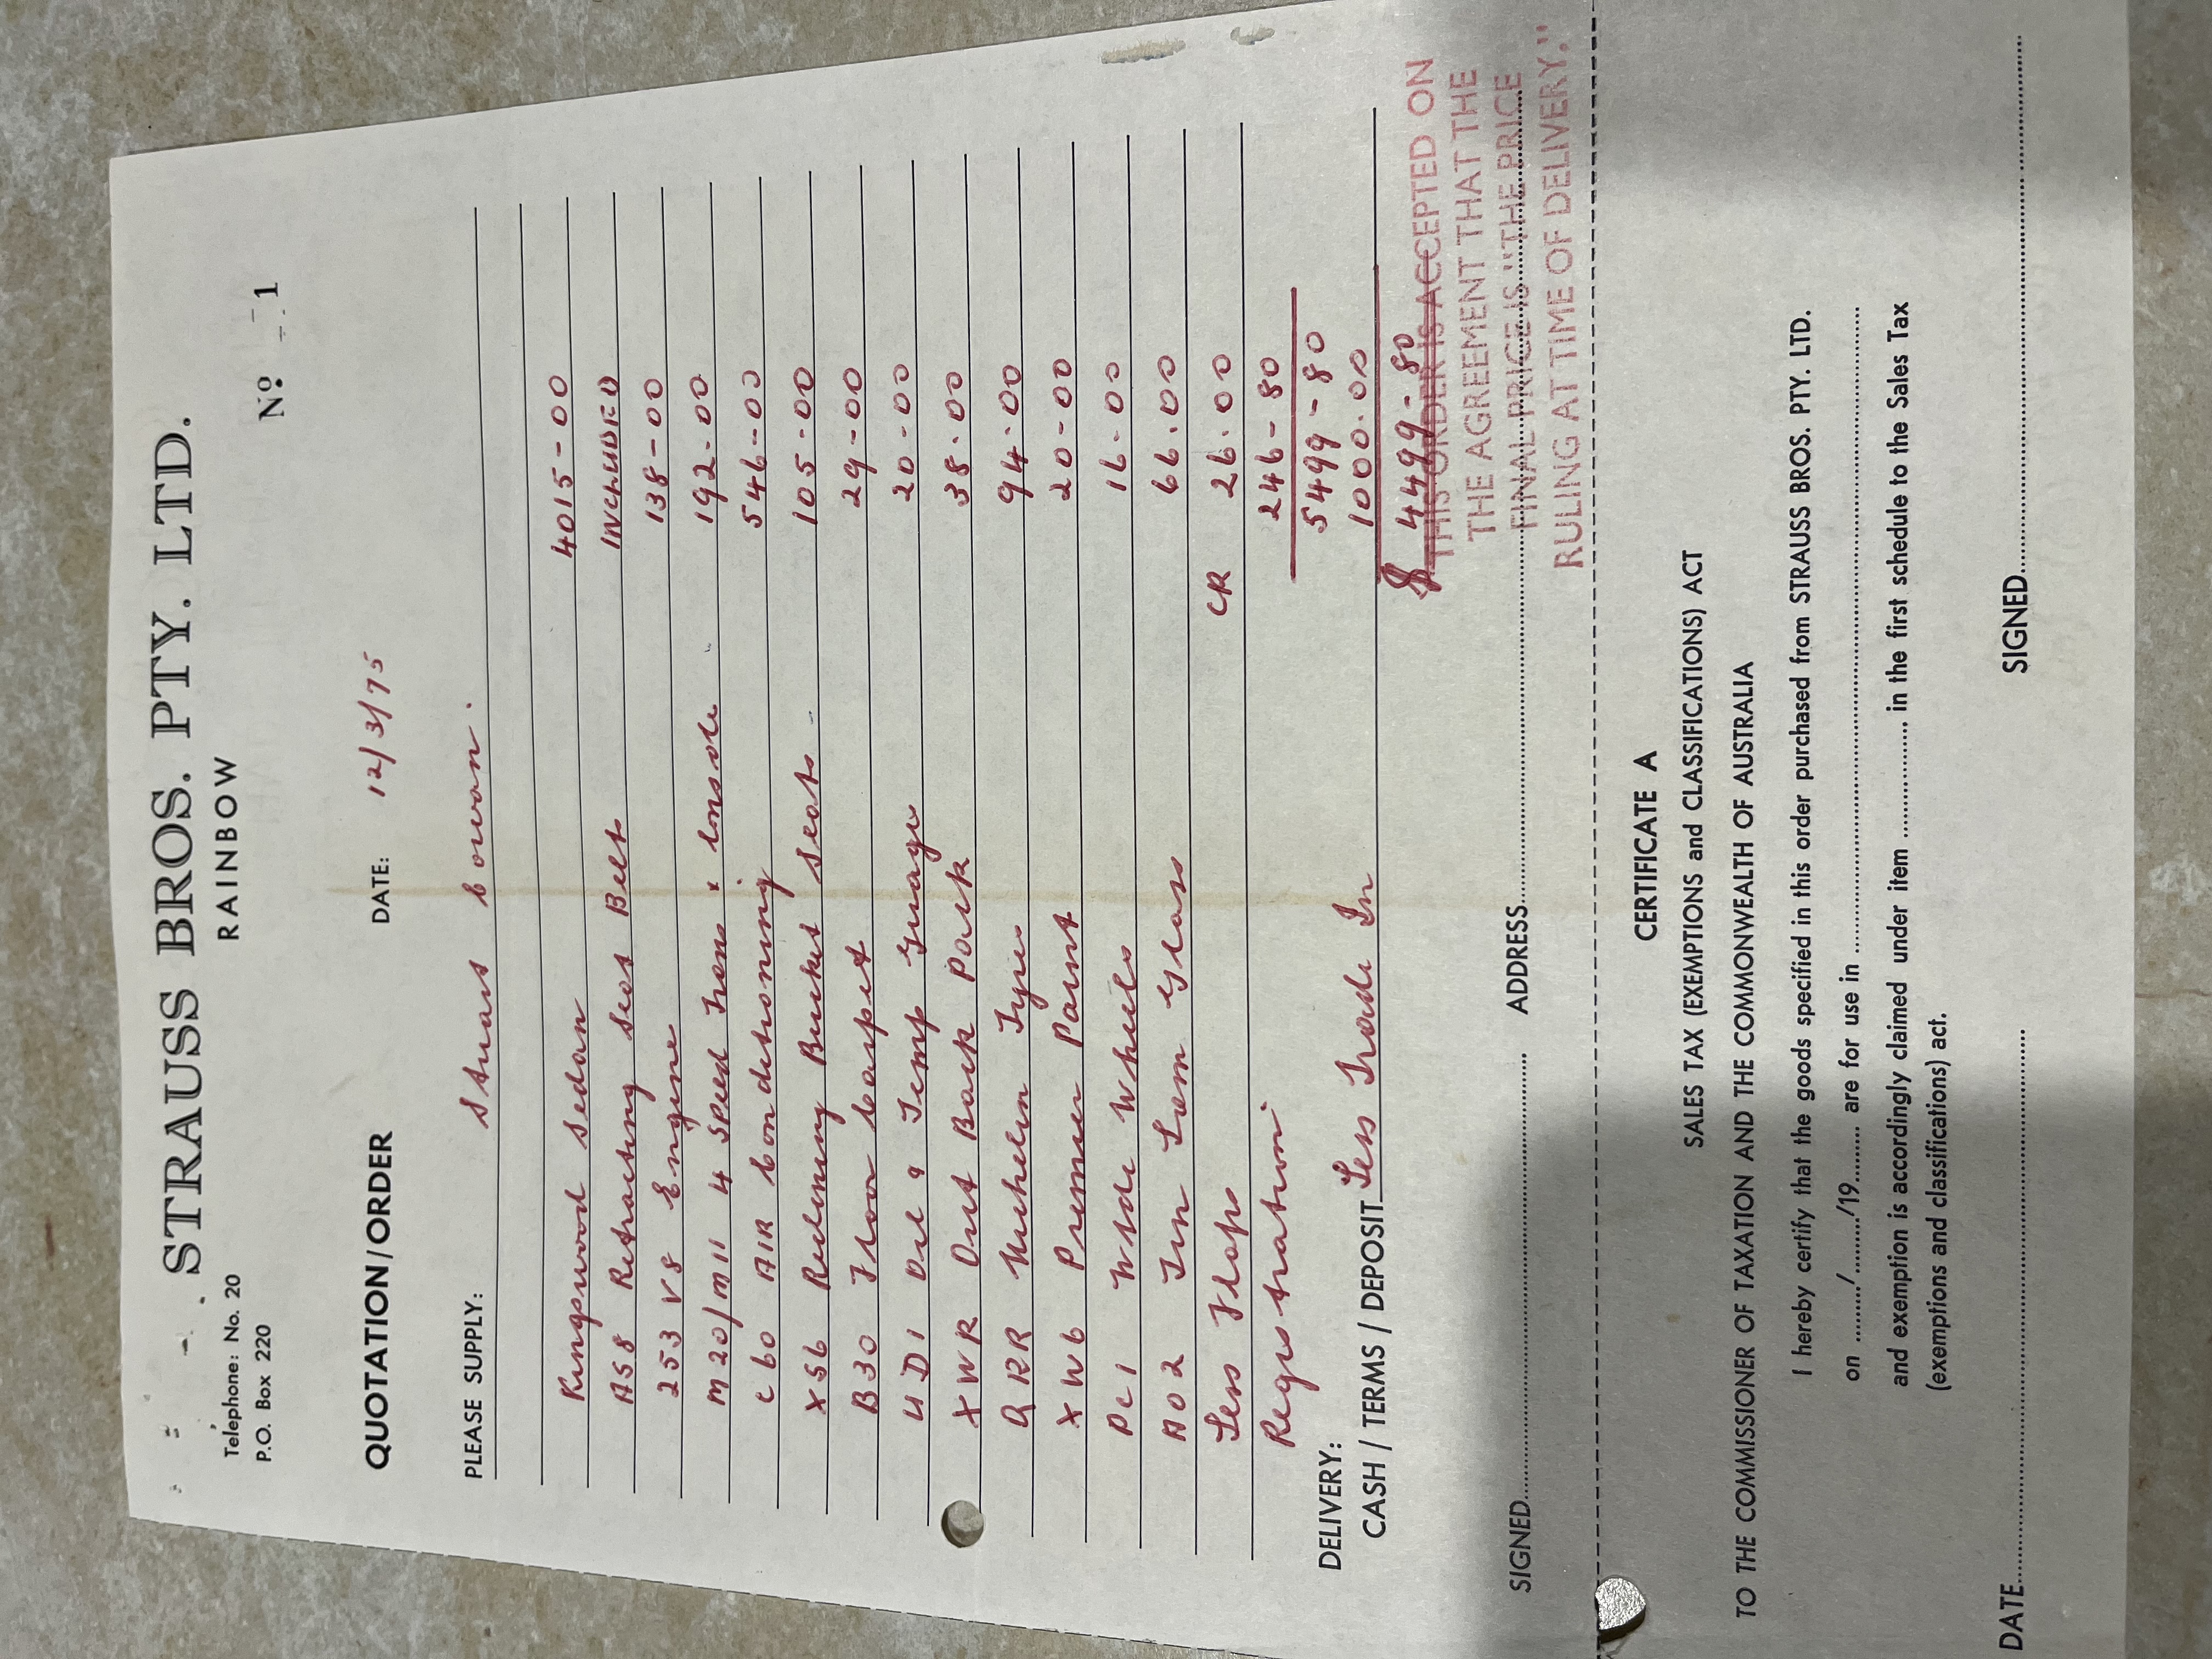 STRAUSS BROS. PTY. LTD.
RAINBOW
Telephone: No. 20
P.O. Box 220
No 1
QUOTATION/ORDER DATE: 12/3/75
PLEASE SUPPLY: Stuart Cowan.
Kingswood Sedan 4015-00
A58 Retracting Seat Belt INCLUDED
253 V8 Engine 138-00
M20/M11 4 Speed Trans & Console 192-00
C60 AIR Conditioning 546-00
X56 Reclining Bucket Seats 105-00
B30 Floor Carpet 29-00
UD1 Oil & Temp Guage 20-00
XWR Dust Back Pack 38.00
QRR Michelin Tyres 94.00
XW6 Premier Paint 20-00
PC1 Wide Wheels 16-00
A02 Tin Lam Glass 66.00
Less Flaps CR 26.00
Registration 246-80
5499-80
DELIVERY:
CASH / TERMS / DEPOSIT Less Trade In 1000.00
$ 4499-80
THIS ORDER IS ACCEPTED ON
THE AGREEMENT THAT THE
FINAL PRICE IS "THE PRICE
RULING AT TIME OF DELIVERY."
SIGNED ADDRESS
CERTIFICATE A
SALES TAX (EXEMPTIONS and CLASSIFICATIONS) ACT
TO THE COMMISSIONER OF TAXATION AND THE COMMONWEALTH OF AUSTRALIA
I hereby certify that the goods specified in this order purchased from STRAUSS BROS. PTY. LTD.
on ........./........./19......... are for use in ..........
and exemption is accordingly claimed under item .......... in the first schedule to the Sales Tax
(exemptions and classifications) act.
DATE.......... SIGNED..........